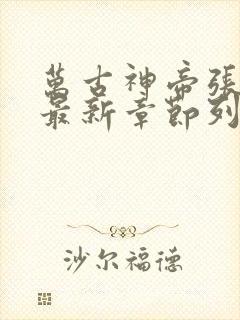 萬古神帝張
最新章節列
沙尔福德